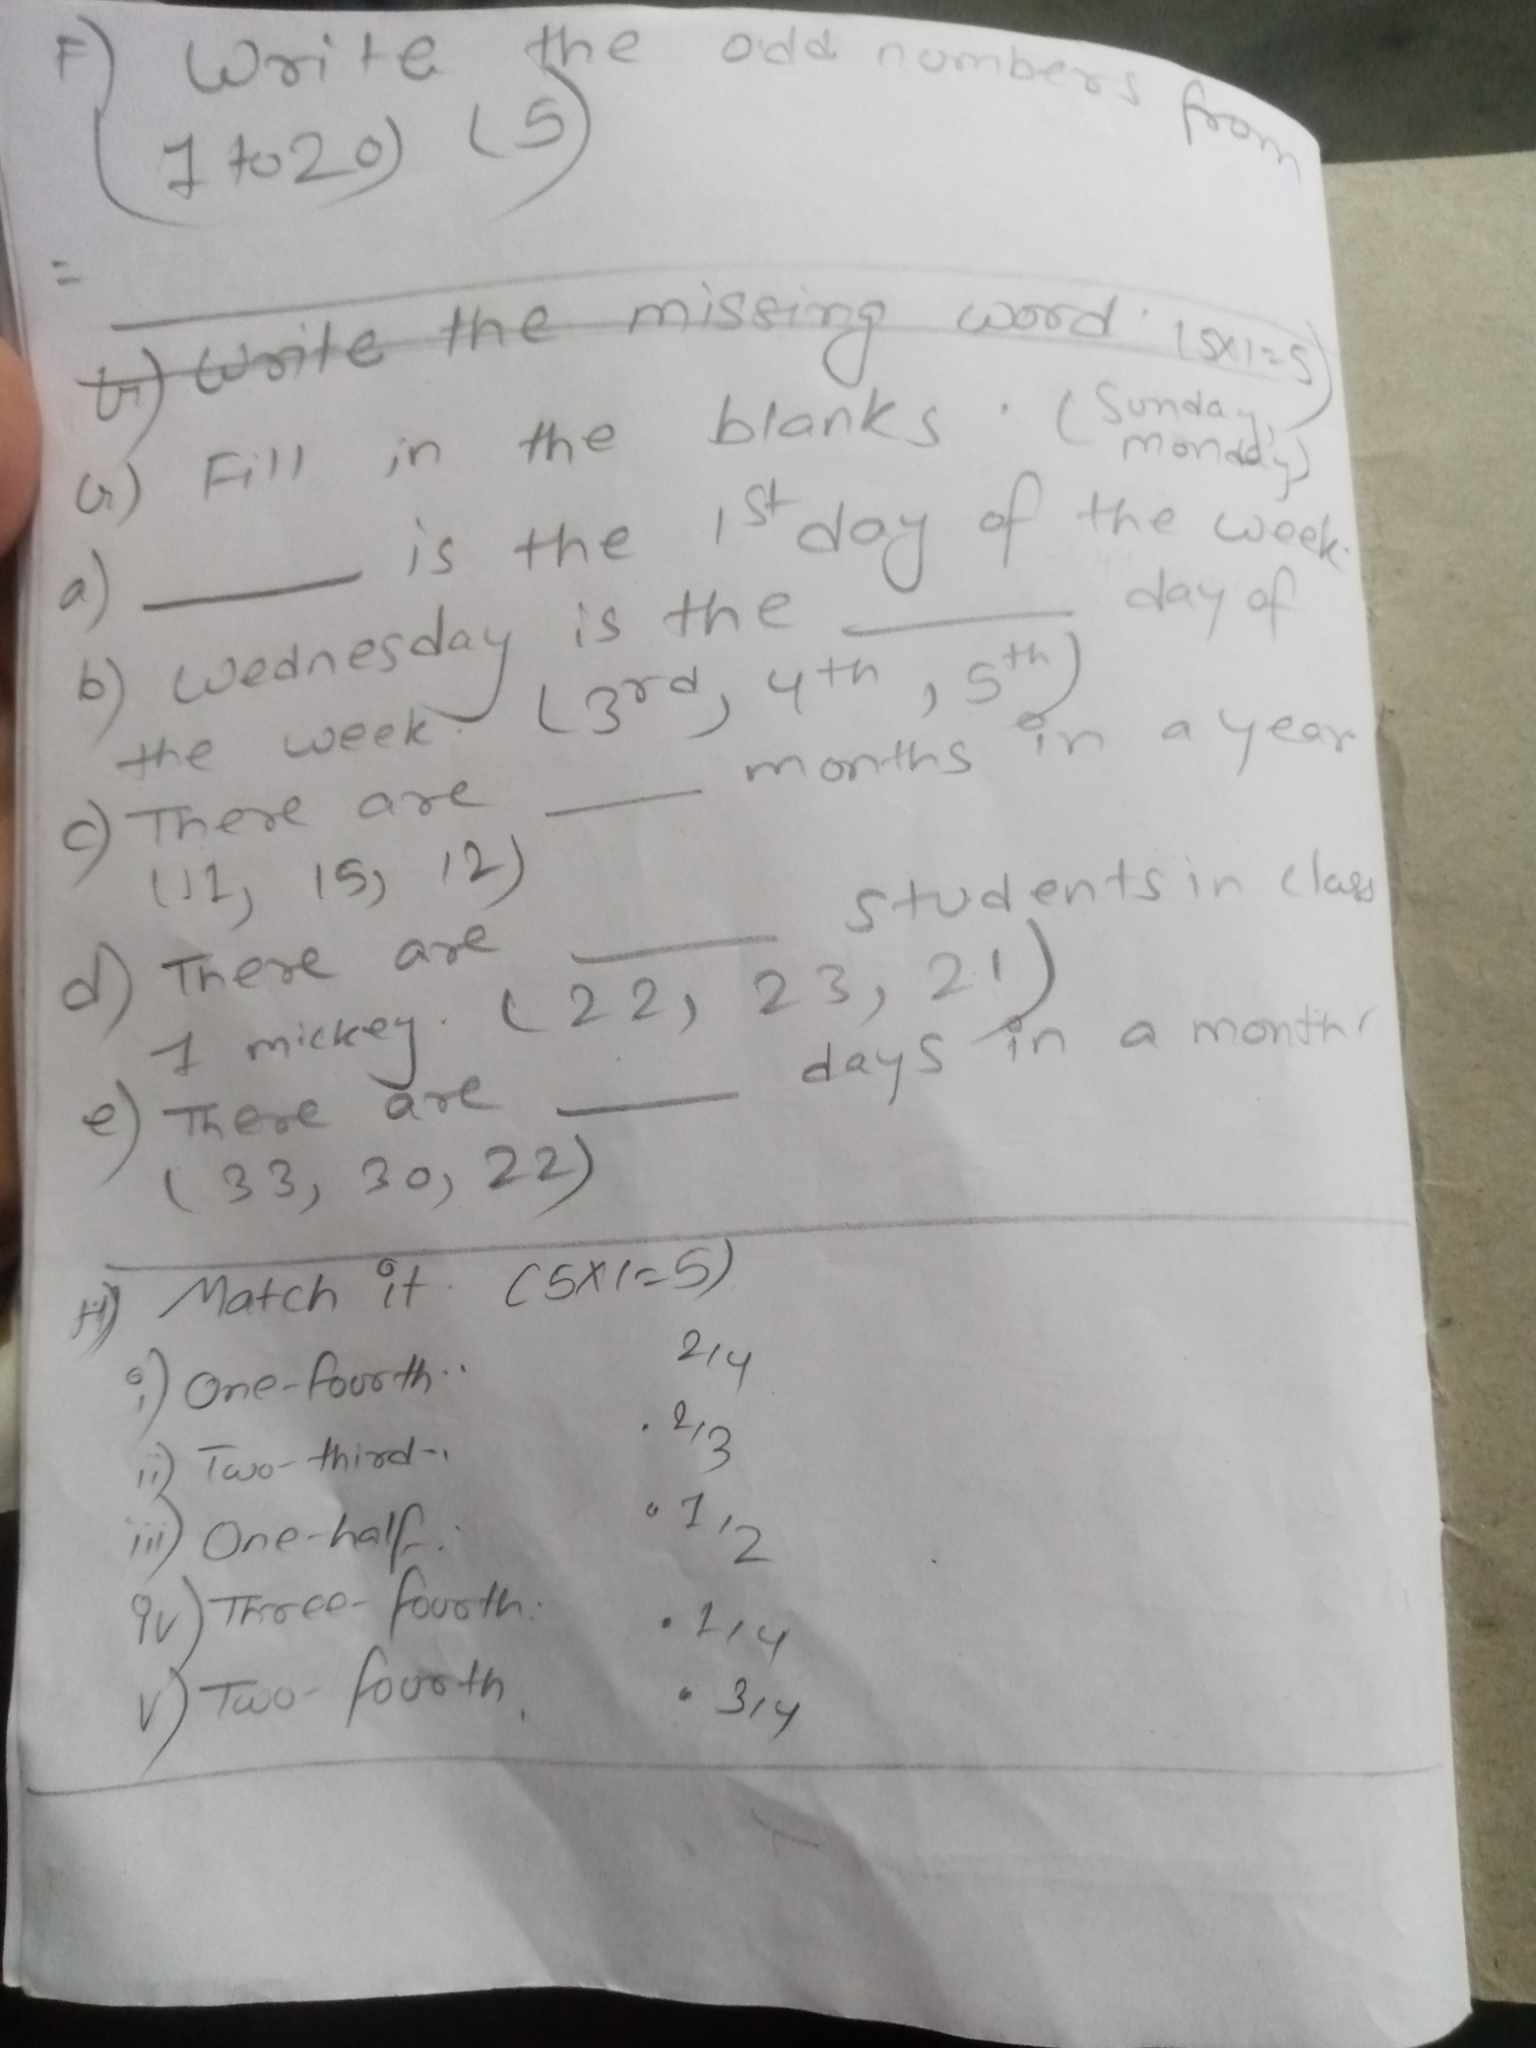 F) Write the odd numbers from
(1 to 20) (5)
=
G) Write the missing word. (5x1=5)
G) Fill in the blanks. (Sunday, monday)
a) ____ is the 1st day of the week.
b) Wednesday is the ____ day of
the week. (3rd, 4th, 5th)
c) There are ____ months in a year
(11, 15, 12)
d) There are ____ students in class
1 mickey. (22, 23, 21)
e) There are ____ days in a month
(33, 30, 22)
H) Match it. (5x1=5)
i) One-fourth. 2/4
ii) Two-third . 2/3
iii) One-half . 1/2
iv) Three-fourth . 1/4
v) Two-fourth . 3/4